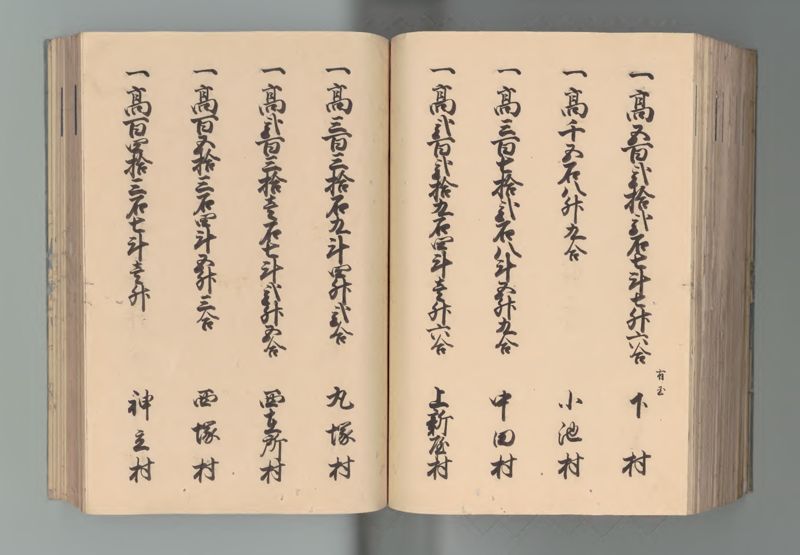 一高五百弐拾弐石七斗七升六合 有玉 下村
一高千五石八升九合 小池村
一高三百七拾弐石八斗五升九合 中田村
一高弐百弐拾五石四斗壱升六合 上新屋村
一高三百三拾石九斗四升弐合 丸塚村
一高弐百三拾壱石七斗弐升五合 西立所村
一高百五拾三石四斗五升三合 西塚村
一高百四拾三石七斗壱升 神立村